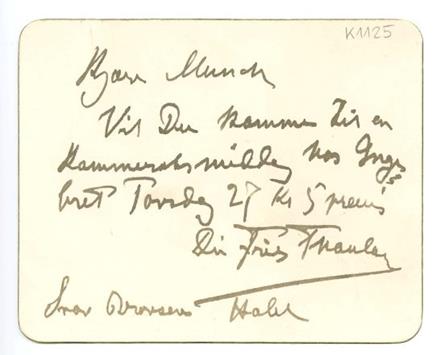 K1125
Kjære Munch
Vil Du komme til en
Kammeratsmiddag hos Inge
bret Torsdag 27 Kl 5 præcis
Din Fritz Thaulow
Svar
Hotel